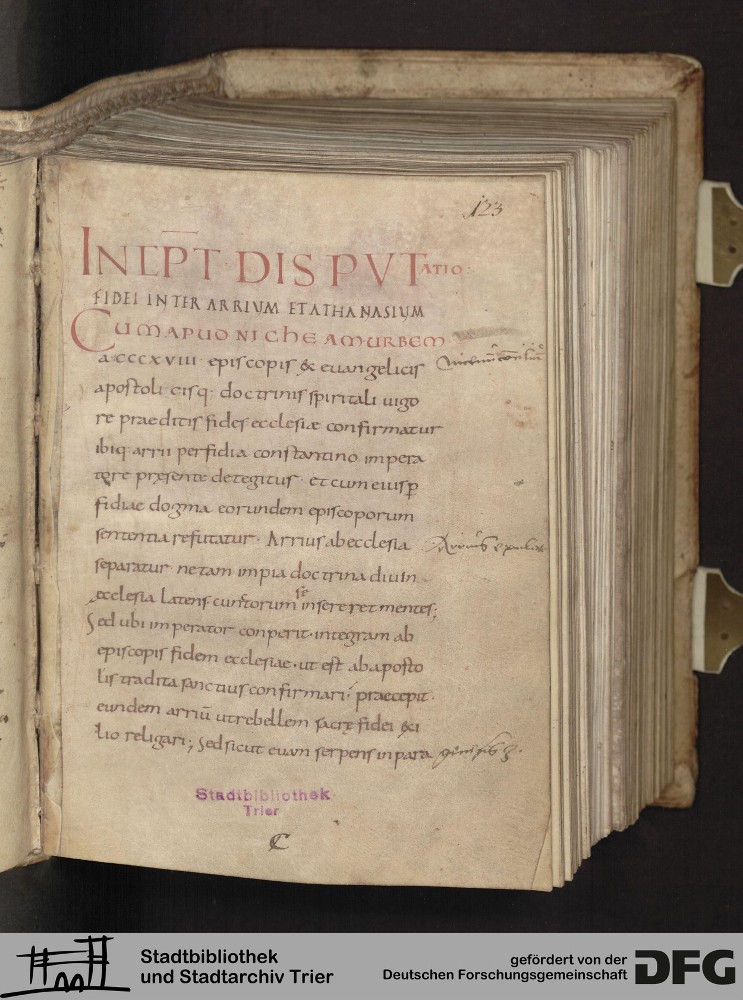 123
INEP̅T DISPVTATIO·
FIDEI INTER ARRIVM ET ATHANASIUM
CUM APUD NICHEAM URBEM
a·CCCXVIII· episcopis & euangelicis
apostolicisq· doctrinis spiritali uigo
re praeditis fides ecclesiæ confirmatur
ibiq· arrii perfidia constantino impera
tore pręsente detegitur· et cum eius ꝑ
fidiae dogma eorundem episcoporum
sententia refutatur· Arrius ab ecclesia
Arrius
separatur ne tam impia doctrina diu in
ecclesia latens cunctorum insereret mentes;
se
Sed ubi imperator conperit· integram ab
episcopis fidem ecclesiae· ut est ab aposto
lis tradita sanctius confirmari· praecepit·
eundem arriū ut rebellem sacrę fidei &i
lio religari; Sed sicut euam serpens in para
genesis 3·
Stadtbibliothek
Trier
C
Stadtbibliothek
und Stadtarchiv Trier
gefördert von der
Deutschen Forschungsgemeinschaft
DFG